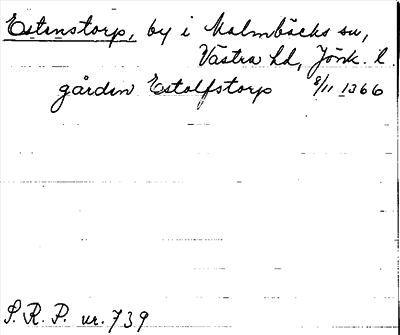 Estenstorp, by i Malmbäcks sn,
Västra hd, Jönk. l.
gården Estolfstorp 8/11 1366
S.R.P. nr. 739